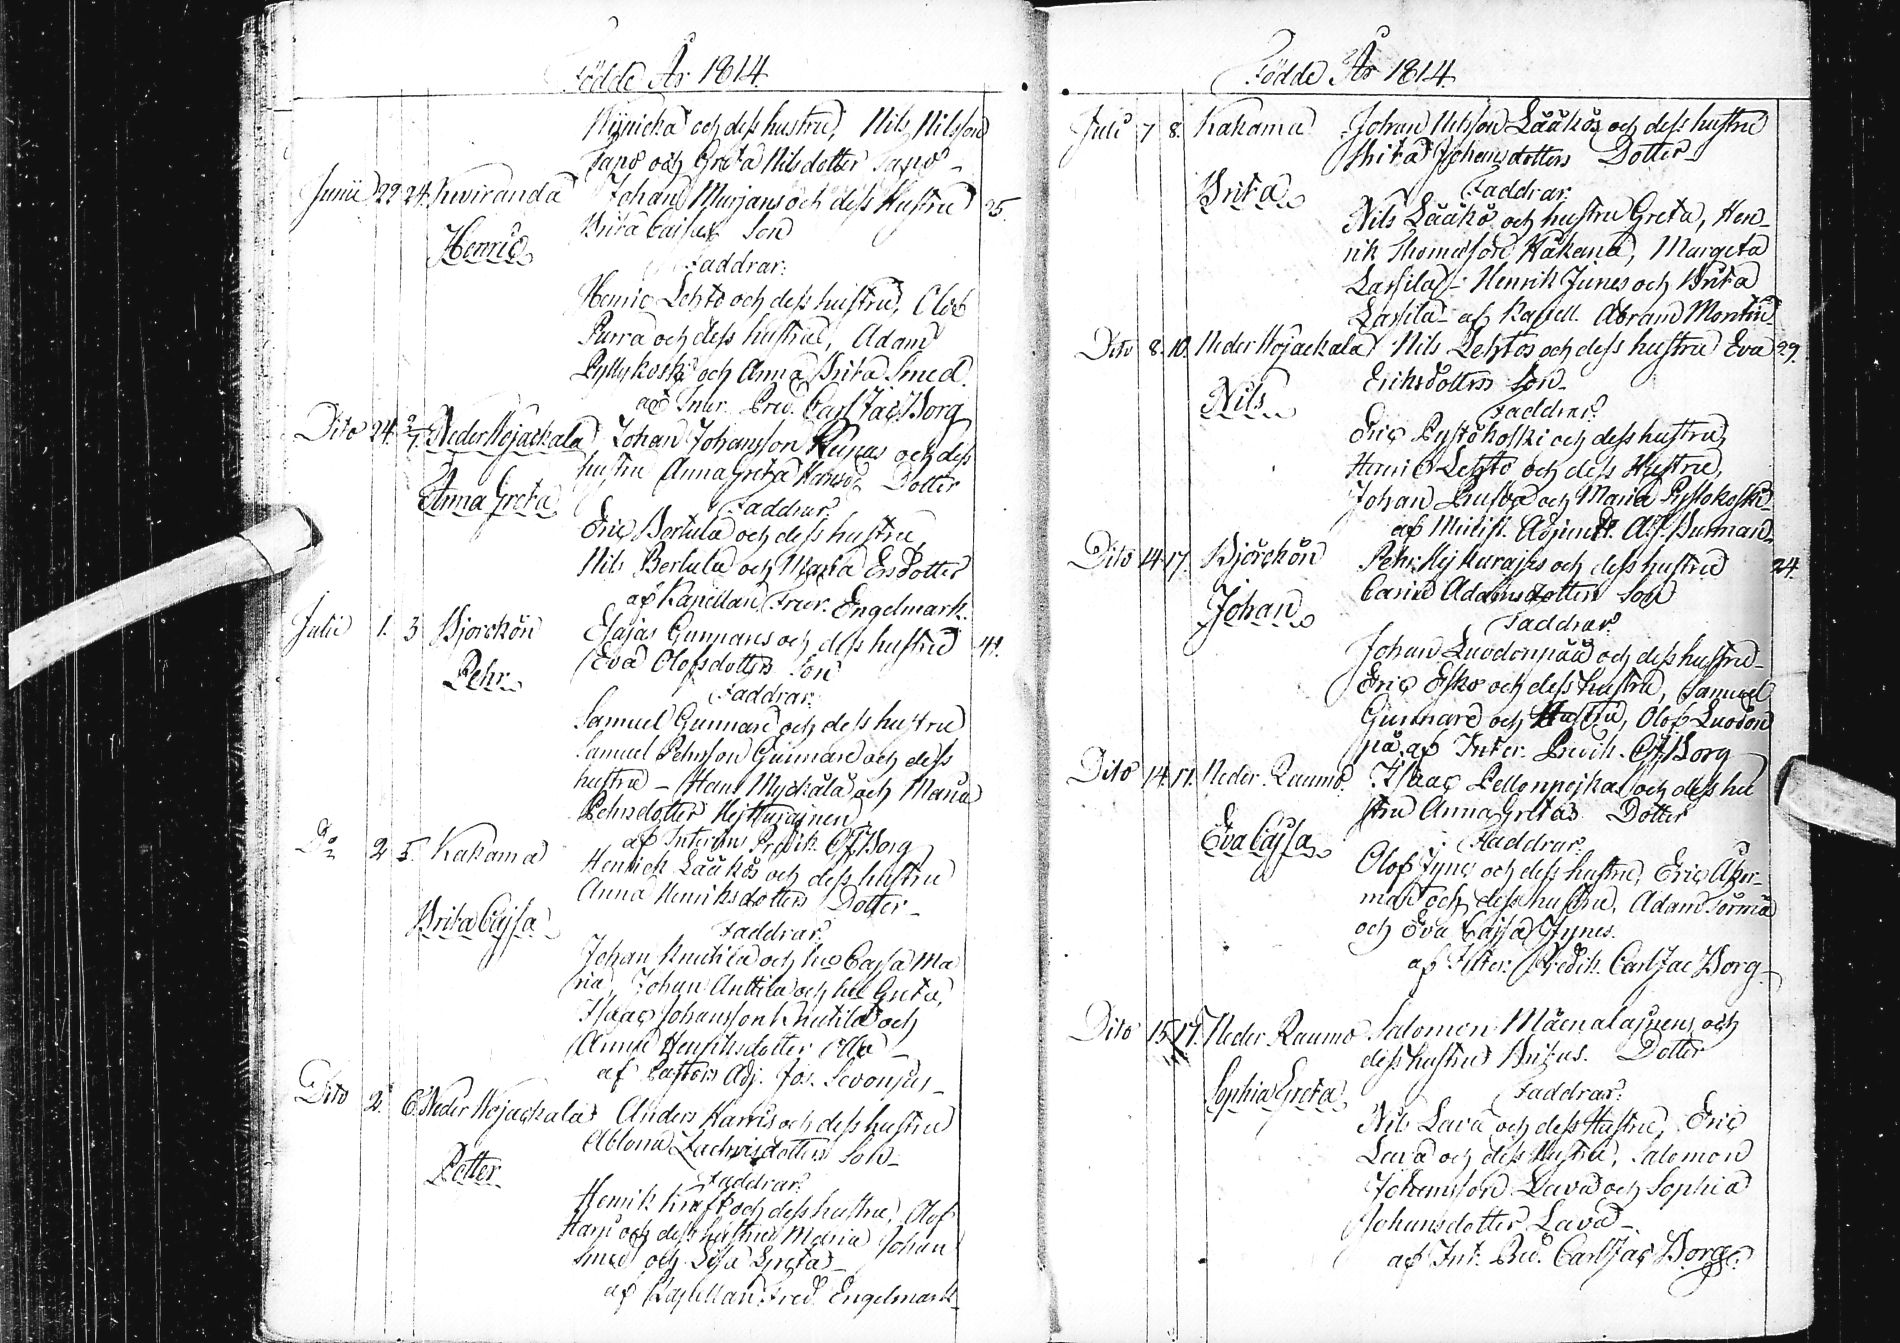 Födde År 1814.
och dess hustru, Nils Nilsson
och Greta Nilsdotter
Junii 22 24. Kuiviranda Johan Marjans och dess Hustru 25.
Brita Cajsas Son
Henric
Faddrar:
Henric Lehto och dess hustru, Olof
Purra och dess hustru, Adam
och Anna Brita Smed.
af Inter. Pred. Carl Jac. Borg
Dito 24. 2/7. Neder Wojackala Johan Johansson och dess
hustru Anna Greta Dotter
Anna Greta
Faddrar.
Eric Bertula och dess hustru,
Nils Bertula och Maria Ersdotter
af Kapellan Engelmark.
Julii 1. 3 Bjorckön Esajas Gunnares och dess hustru 41.
Eva Olofsdotters Son
Pehr
Faddrar:
Samuel Gunnare och dess hustru
Samuel Pehrsson Gunnare och dess
hustru – Hans Myckälä och Maria
Pehrsdotter
af Interims Predik. Borg
Do 2. 5. Kakama Henrich Lääkös och dess hustru
Anna Henriksdotters Dotter
Brita Cajsa
Faddrar:
Johan Knutila och hu Cajsa Ma
ria, Johan Anttila och hu Greta,
Isaac Johansson Knutila och
Anna Henriksdotter
af Pastors Adj. Jos.
Dito 2. 6. Neder Wojackala Anders Harris och dess hustru
Son
Petter
Faddrar:
Henrik Kraft och dess hustru, Olof
Harju och dess hustru Maria Johan
Smed och Lisa Greta
af Kapellan Fred. Engelmark
Födde År 1814.
Julii 7 8. Kakama Johan Nilsson Lääkös och dess hustru
Brita Johansdotters Dotter
Brita
Faddrar.
Nils Lääkö och hustru Greta, Hen-
rik Thomasson Hakena, Margeta
Lassila – Henrik Junes och Brita
Lassila – af Kapell. Abram Montin
Dito 8. 10. Neder Wojackala Nils Lehtos och dess hustru Eva 29.
Eriksdotters Son
Nils
Faddrar:
Eric och dess hustru,
Henric Lehto och dess Hustru,
Johan och Maria
af Adjunkt. Burman
Dito 14 17. Bjorckön Pehr och dess hustru 24.
Carin Adamsdotters Son
Johan
Faddrar:
Johan Luodonpää och dess hustru
Eric Esko och dess hustru, Samuel
Gunnare och Hustru, Olof Luodon
pä, af Inter. Predik. Borg
Dito 14. 17. Neder Raumo Isaac Pellonpojkas och dess hu
stru Anna Gretas Dotter
Eva Cajsa
Faddrar.
Olof och dess hustru, Eric Åker-
man och dess hustru, Adam Törmä
och Eva Cajsa
af Inter. Predik. Carl Jac Borg
Dito 15. 17. Neder Raumo Salomon och
dess hustru Dotter
Sophia Greta
Faddrar:
Nils Lava och dess Hustru, Eric
Lava och dess Hustru, Salomon
Johansson Lava och Sophia
Johansdotter Lava
af Int. Pred. Carl Jac. Borg.